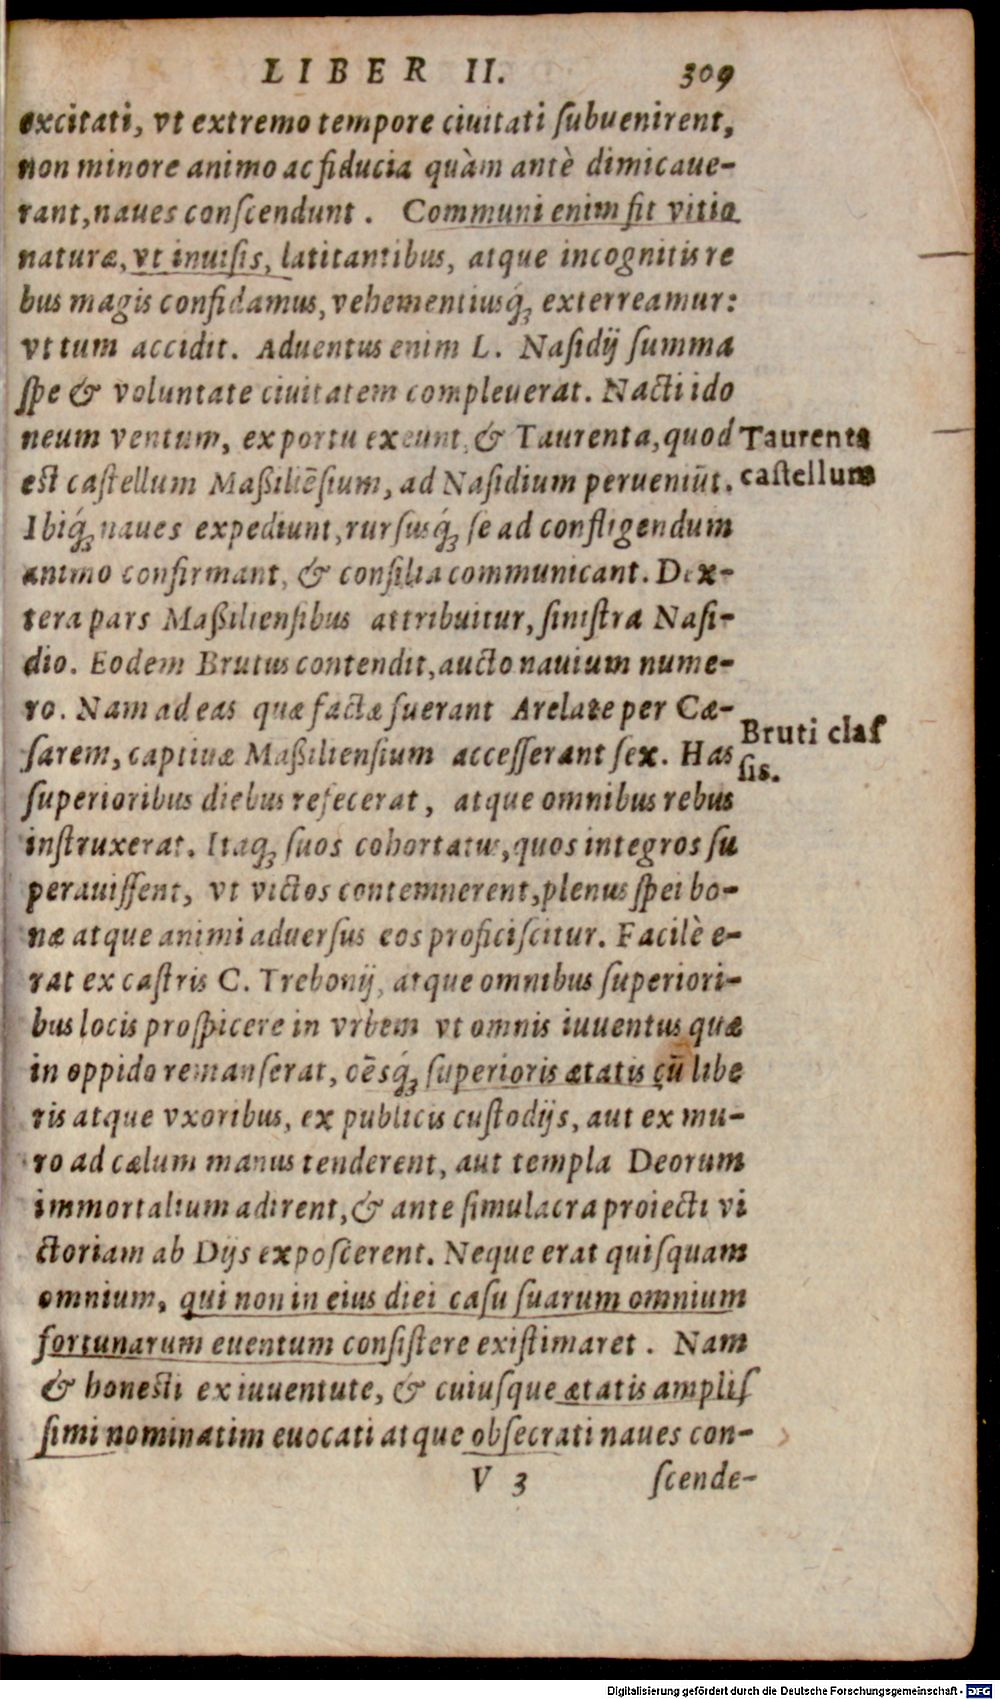 LIBER II. 309
excitati, vt extremo tempore ciuitati ſubuenirent,
non minore animo ac fiducia quàm antè dimicaue-
rant, naues conſcendunt. Communi enim fit vitio
naturæ, vt inuiſis, latitantibus, atque incognitis re
bus magis confidamus, vehementiusq́ꝫ exterreamur:
vt tum accidit. Aduentus enim L. Naſidij ſumma
ſpe & voluntate ciuitatem compleuerat. Nacti ido
neum ventum, ex portu exeunt, & Taurenta, quod
Taurenta
est caſtellum Maßiliẽſium, ad Naſidium perueniũt.
caſtellum
Ibiq́ꝫ naues expediunt, rurſusq́ꝫ ſe ad confligendum
animo confirmant, & conſilia communicant. Dex-
tera pars Maßilienſibus attribuitur, ſiniſtra Naſi-
dio. Eodem Brutus contendit, aucto nauium nume-
ro. Nam ad eas quæ factæ fuerant Arelate per Cæ-
Bruti claſ
ſarem, captiuæ Maßilienſium acceſſerant ſex. Has
ſis.
ſuperioribus diebus refecerat, atque omnibus rebus
inſtruxerat. Itaqꝫ ſuos cohortatus, quos integros ſu
perauiſſent, vt victos contemnerent, plenus ſpei bo-
næ atque animi aduerſus eos proficiſcitur. Facilè e-
rat ex caſtris C. Trebonij, atque omnibus ſuperiori-
bus locis proſpicere in vrbem vt omnis iuuentus quæ
in oppido remanſerat, oẽsq́ꝫ ſuperioris ætatis cũ libe
ris atque vxoribus, ex publicis cuſtodijs, aut ex mu-
ro ad cælum manus tenderent, aut templa Deorum
immortalium adirent, & ante ſimulacra proiecti vi
ctoriam ab Dijs expoſcerent. Neque erat quiſquam
omnium, qui non in eius diei caſu ſuarum omnium
fortunarum euentum conſiſtere exiſtimaret. Nam
& honesti ex iuuentute, & cuiuſque ætatis ampliſ
ſimi nominatim euocati atque obſecrati naues con-
V 3 ſcende-
Digitalisierung gefördert durch die Deutsche Forschungsgemeinschaft - DFG